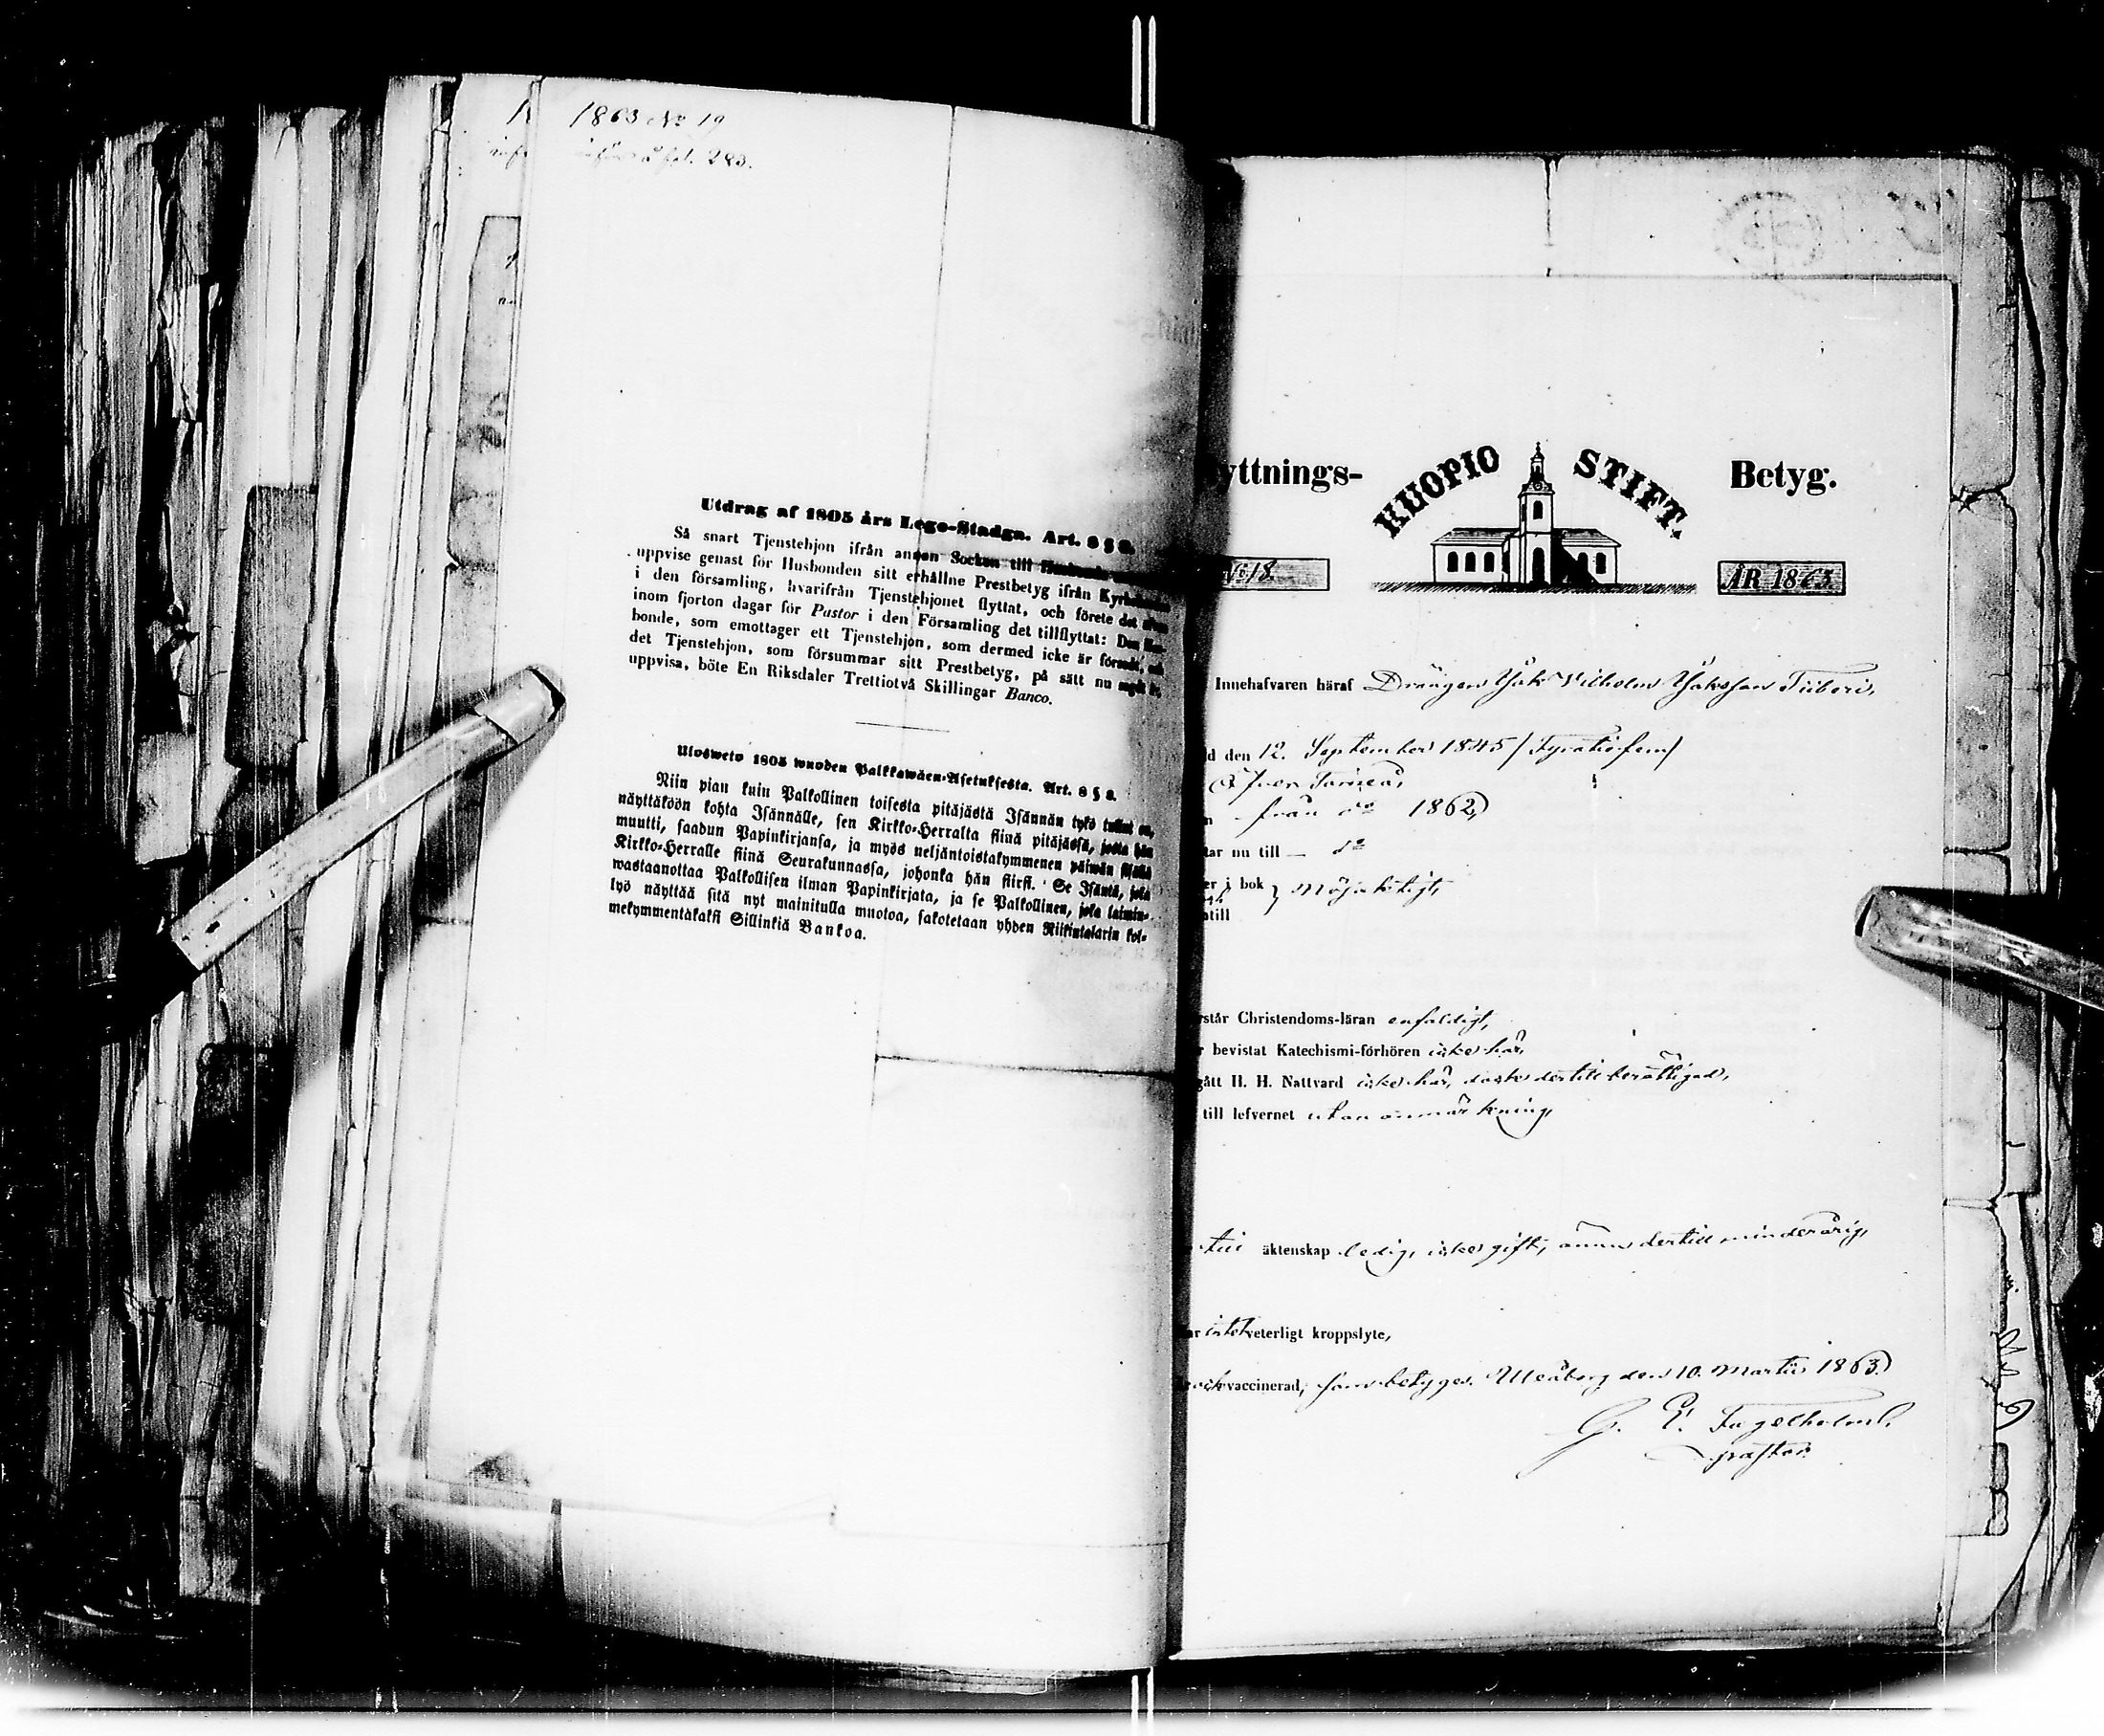 1863 No 19
införd å fol. 283.
Utdrag af 1805 års Lego-Stadga. Art. 8 § 8.
Så snart Tjenstehjon ifrån annan Socken till
uppvise genast för Husbonden sitt erhållne Prestbetyg ifrån
i den församling, hvarifrån Tjenstehjonet flyttat, och förete det
inom fjorton dagar för Pastor i den Församling det tillflyttat: Den Hus-
bonde, som emottager ett Tjenstehjon, som dermed icke är försedt, och
det Tjenstehjon, som försummar sitt Prestbetyg, på sätt nu sagdt är,
uppvisa, böte En Riksdaler Trettiotvå Skillingar Banco.
Ulosweto 1805 wuoden Palkkawäen-Asetuksesta. Art. 8 § 8.
Niin pian kuin Palkollinen toisesta pitäjästä Isännän tykö tullut on,
näyttäköön kohta Isännälle, sen Kirkko-Herralta siinä pitäjässä, josta hän
muutti, saadun Papinkirjansa, ja myös neljäntoistakymmenen päiwän sisällä
Kirkko-Herralle siinä Seurakunnassa, johonka hän siirsi. Se Isäntä, joka
wastaanottaa Palkollisen ilman Papinkirjata, ja se Palkollinen, joka laimin-
lyö näyttää sitä nyt mainitulla muotoa, sakotetaan yhden Riikintalarin kol-
mekymmentäkaksi Sillinkiä Bankoa.
yttnings- KUOPIO STIFT. Betyg.
No 18. ÅR 1863.
Innehafvaren häraf Drängen Isak Wilhelm Isaksson Tiiberi,
d den 12. September 1845 / Fyratiofem /
Öfver Torneå,
n från do 1862,
tar nu till — do
er i bok } Möjaktigt,
till
står Christendoms-läran enfaldigt,
bevistat Katechismi-förhören icke här,
gått H. H. Nattvard icke här, dock dertill berättigad,
till lefvernet utan anmärkning,
till äktenskap ledig, icke gift, ännu dertill minderårig,
ar intet veterligt kroppslyte,
och vaccinerad, som betygas. Uleåborg den 10. Martii 1863.
G. E. Fagerholm.
Pastor.